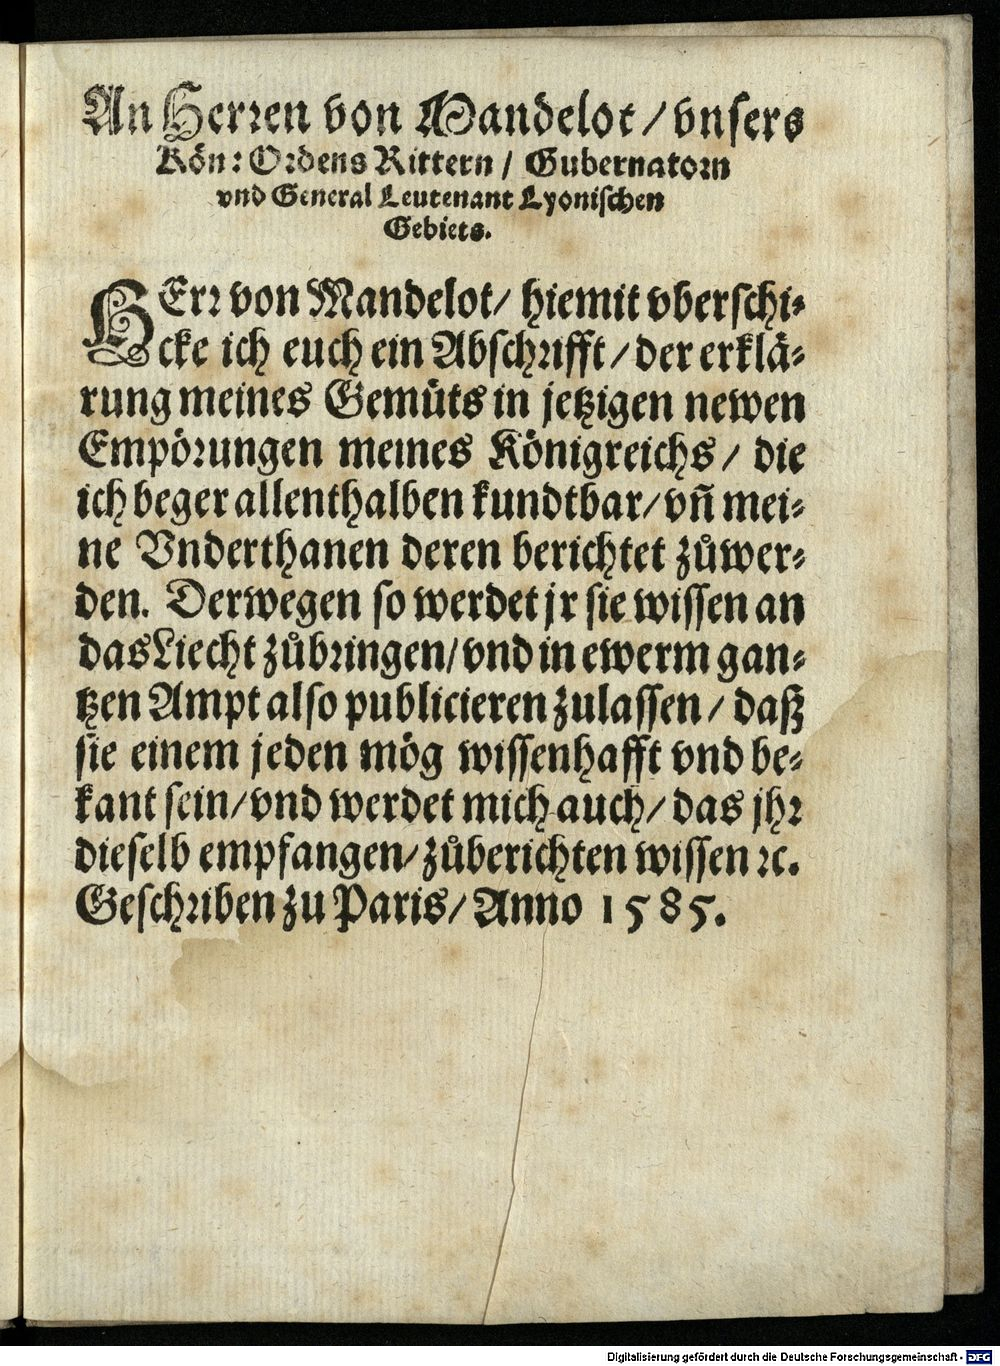 An Herren von Mandelot / vnsers
Kön: Ordens Rittern / Gubernatorn
vnd General Leutenant Lyonischen
Gebiets.
HErr von Mandelot / hiemit vberschi-
cke ich euch ein Abschrifft / der erklä-
rung meines Gemüts in jetzigen newen
Empörungen meines Königreichs / die
ich beger allenthalben kundtbar / vñ mei-
ne Vnderthanen deren berichtet zůwer-
den. Derwegen so werdet jr sie wissen an
das Liecht zůbringen / vnd in ewerm gan-
tzen Ampt also publicieren zulassen / daß
sie einem jeden mög wissenhafft vnd be-
kant sein / vnd werdet mich auch / das jhr
dieselb empfangen / zůberichten wissen ꝛc.
Geschriben zu Paris / Anno 1585.
Digitalisierung gefördert durch die Deutsche Forschungsgemeinschaft - DFG